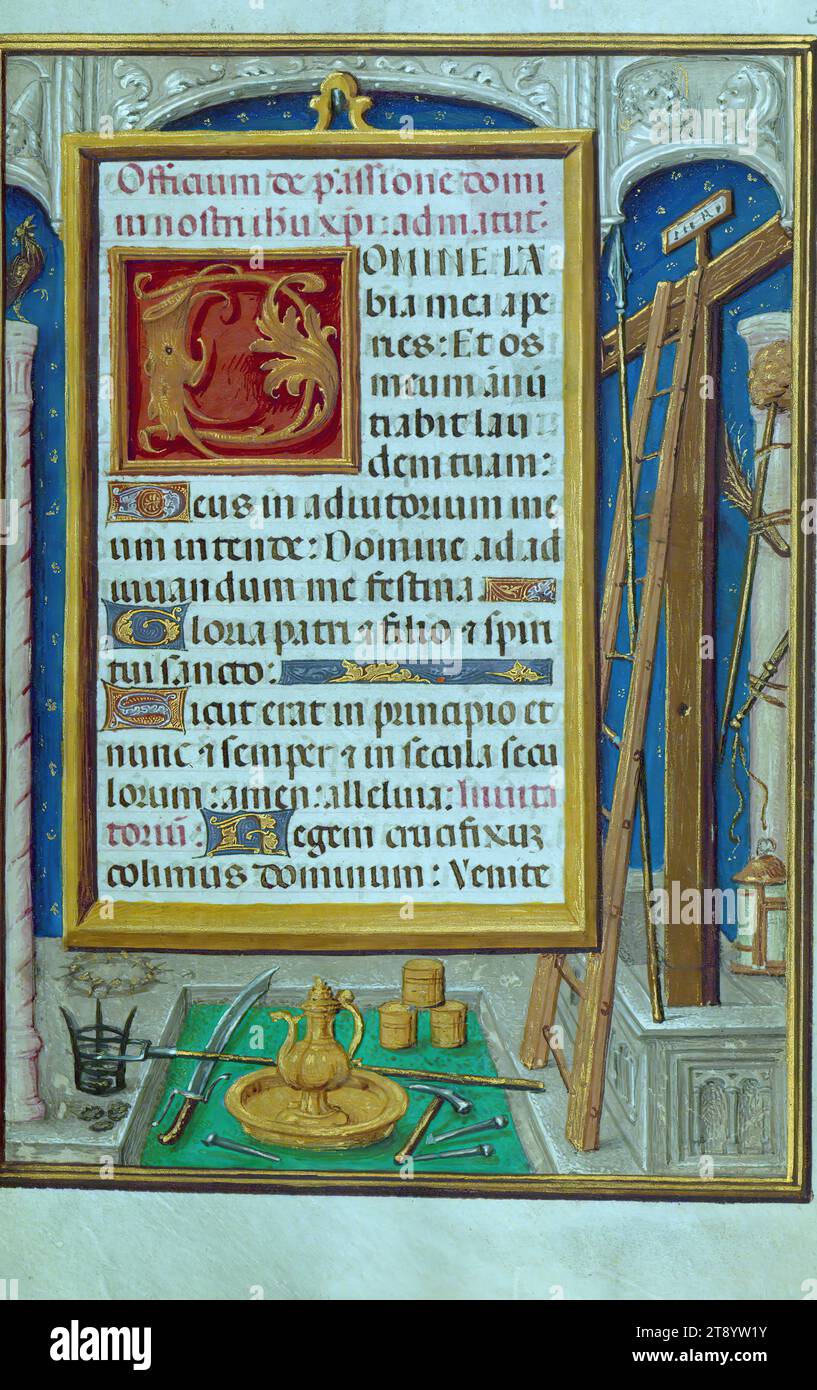 Officium de passione domi
ni nostri ihu xpi: ad matut
INRI
DOMINE LA
bia mea ape
ries: Et os
meum ānū
tiabit lau
dem tuam:
Deus in adiutorium me
um intende: Domine ad ad
iuuandum me festina
Gloria patri & filio & spiri
tui sancto:
Sicut erat in principio et
nunc & semper & in secula secu
lorum: amen: alleluia: Inuita
toriū: Regem crucifixuz
colimus dominum: Venite
alamy
alamy
Image ID: 2T8YW1Y
www.alamy.com